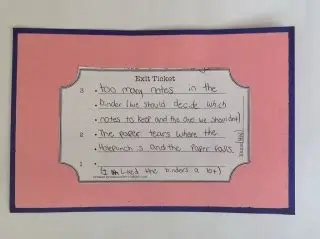 Exit Ticket
3 • too many notes in the
• binder (we should decide which
• notes to keep and the one we shouldnt)
2 • The paper tears where the
• Holepunch is and the paper falls
1 •
(I liked the binders a lot)